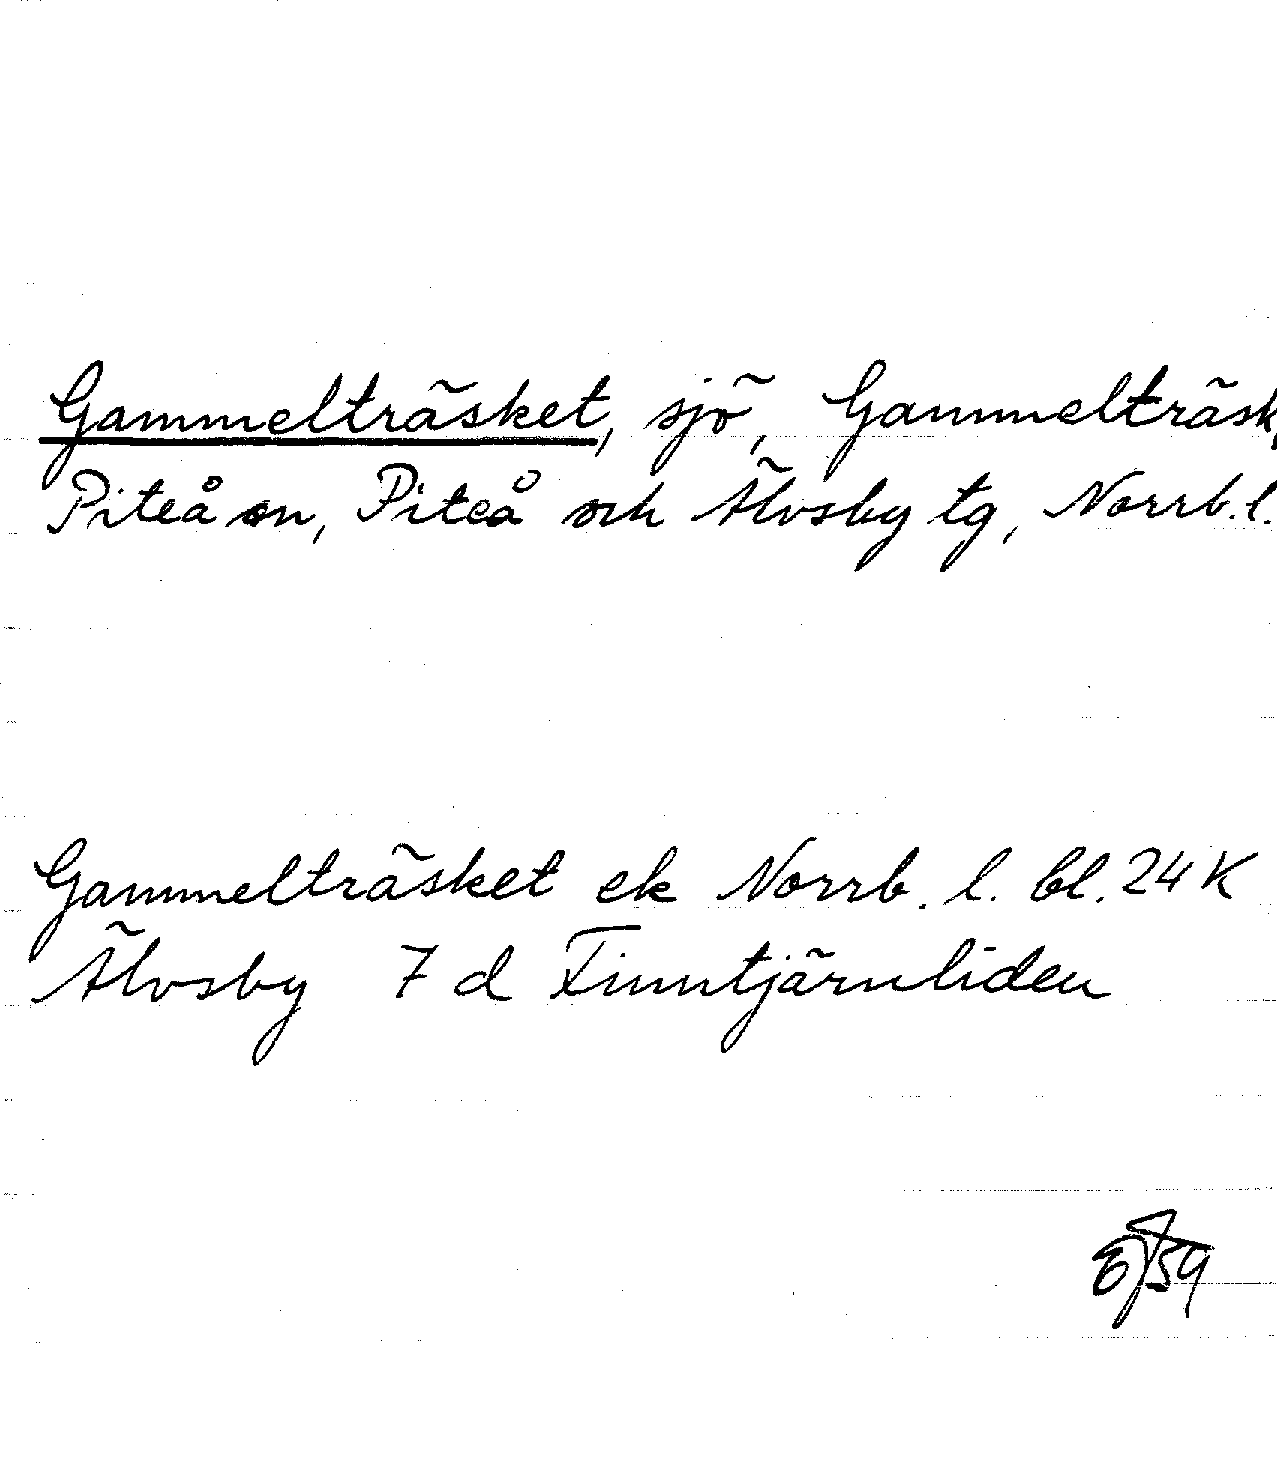 Gammelträsket, sjö, Gammelträsk,
Piteå sn, Piteå och Älvsby tg, Norrb. l.
Gammelträsket ek Norrb. l. bl. 24 K
Älvsby 7 d Finntjärnliden